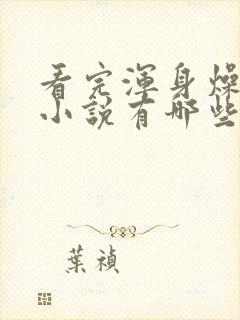 看完渾身燥
小說有哪些
葉禎